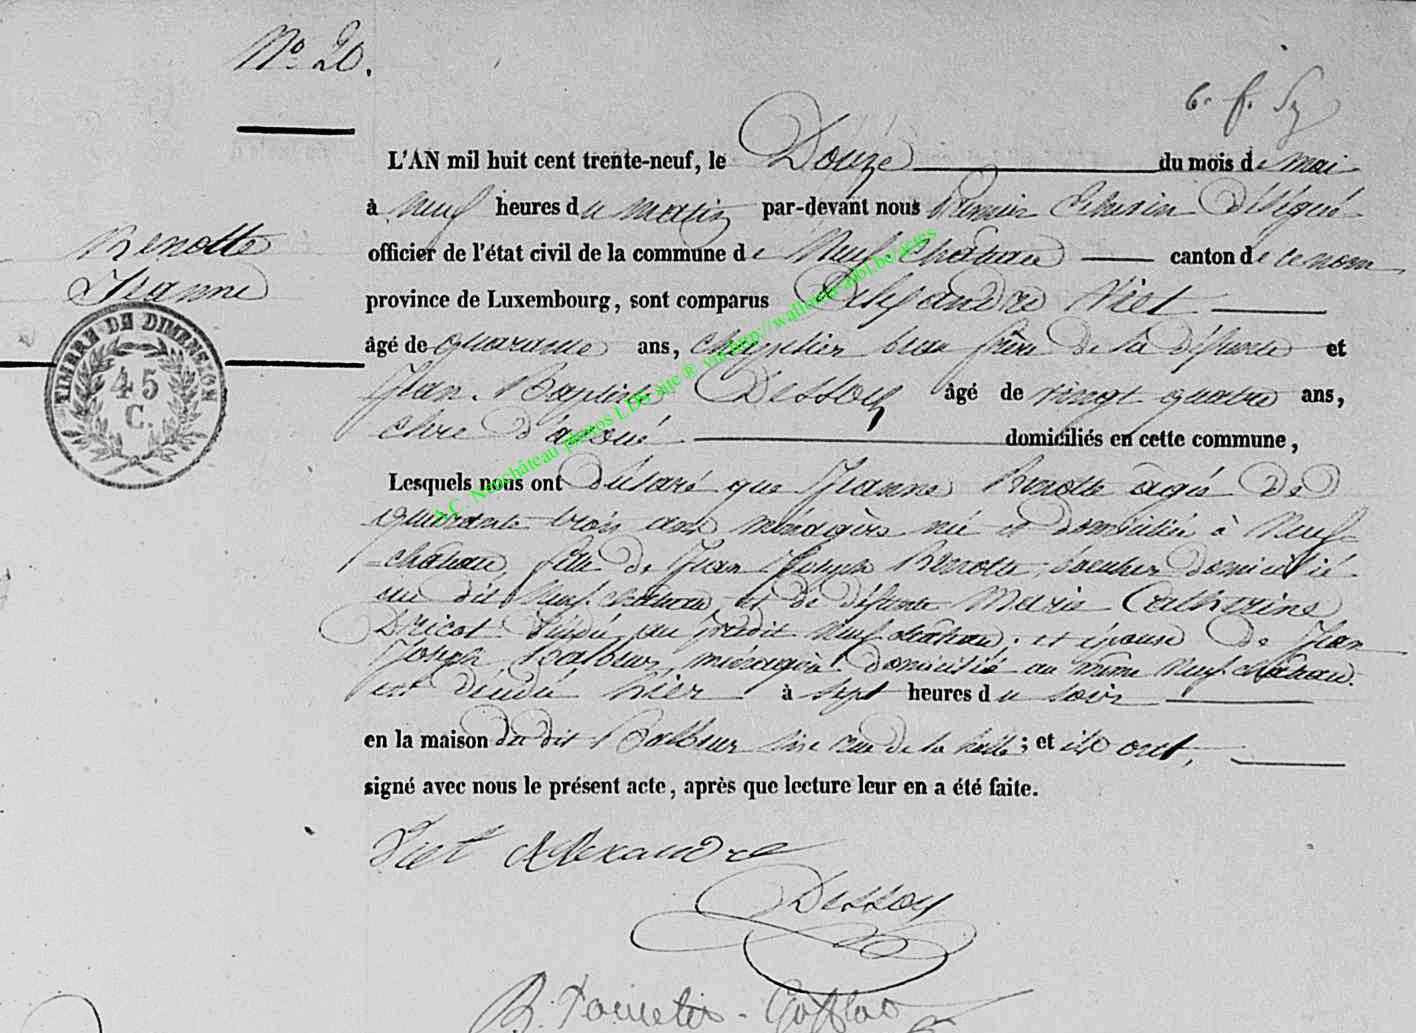 N° 20.
L'AN mil huit cent trente-neuf, le Douze du mois de mai
à neuf heures du matin par-devant nous premier Echevin Délégué
Renotte
Jeanne
officier de l'état civil de la commune de Neufchâteau canton de ce nom
province de Luxembourg, sont comparus Alexandre Viet
TIMBRE DE DIMENSION
45
C.
âgé de quarante ans, beau frère de la défunte et
Jean Baptiste Dessoy âgé de vingt quatre ans,
clerc d'avoué domiciliés en cette commune,
Lesquels nous ont déclaré que Jeanne Renotte agée de
quarante trois ans ménagère née et domiciliée à Neuf-
château, fille de Jean Joseph Renotte, domicilié
au dit Neufchateau, et de défunte Marie Catherine
Dricot décédée au prédit Neufchâteau; et épouse de Jean
Joseph domicilié au même Neufchâteau.
est décédée hier à sept heures du soir
en la maison du dit sise rue de la halle; et ils ont,
signé avec nous le présent acte, après que lecture leur en a été faite.
Viet Alexandre
Dessoy
A.C. Neufchâteau photos LDS site ® via http://wallonia-asbl.be/actes